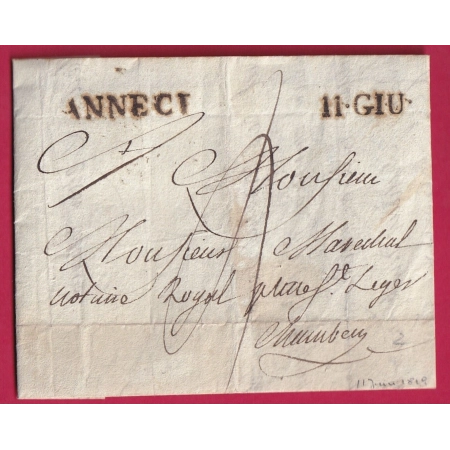 ANNECI 11·GIU·
Monsieur
Monsieur Marechal
notaire Royal place St. Leger
Chambery
2
11 Juin 1819